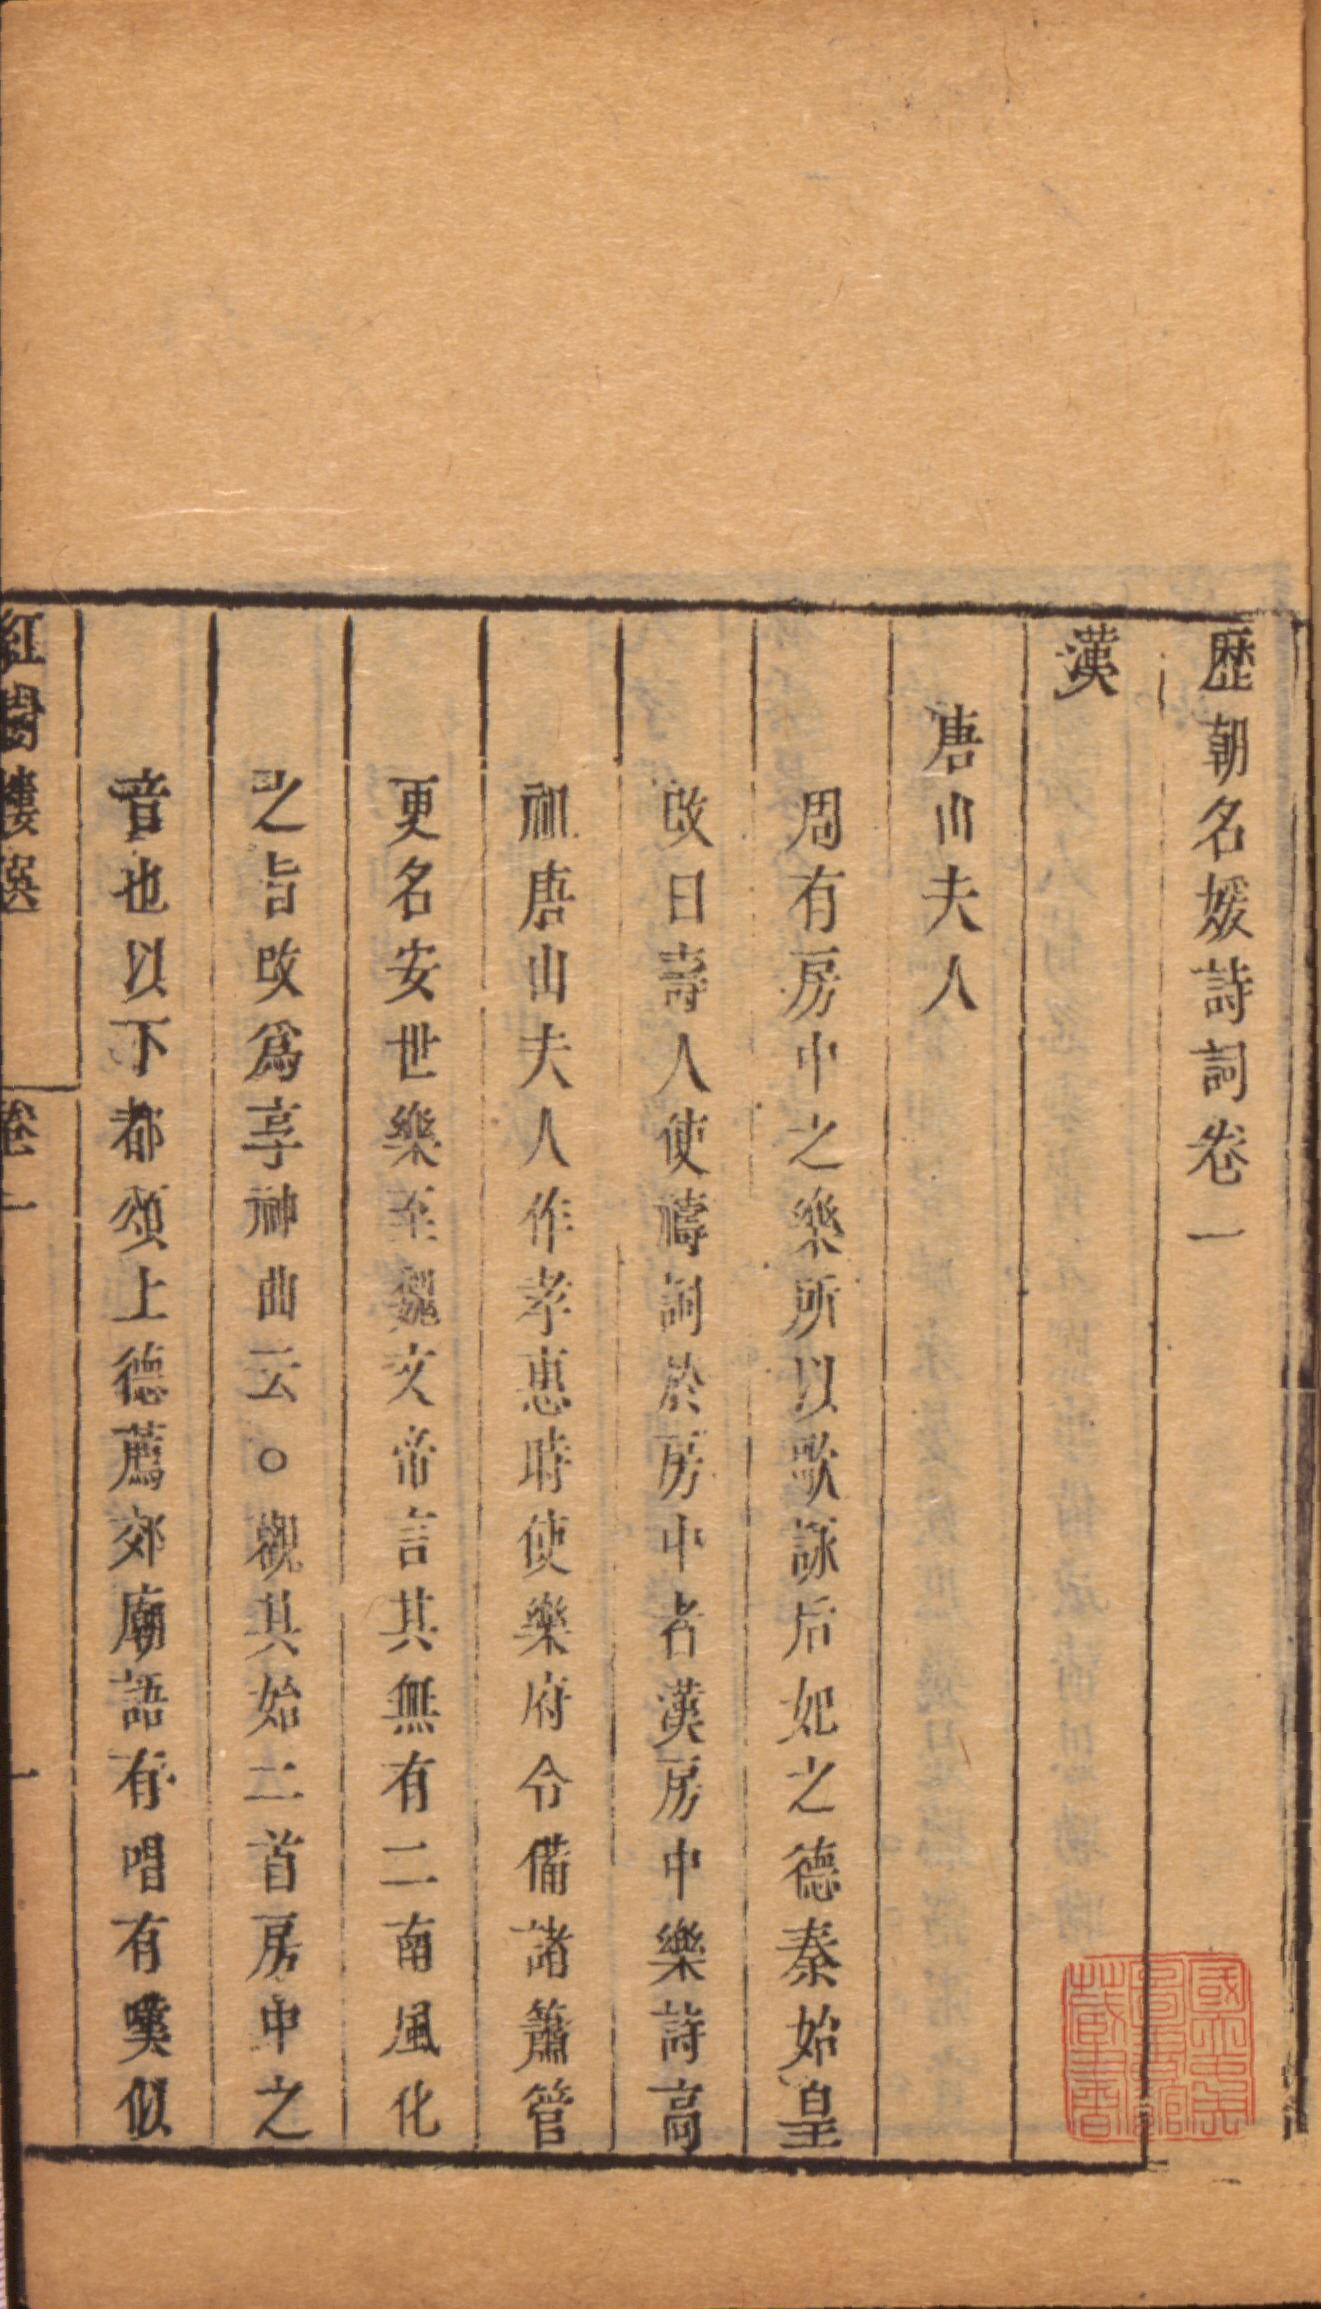 歷朝名媛詩詞卷一
漢
唐山夫人
周有房中之樂所以歌詠后妃之德秦始皇
改曰壽人使禱詞於房中者漢房中樂詩高
祖唐山夫人作孝惠時使樂府令備諸簫管
更名安世樂至魏文帝言其無有二南風化
之旨改爲享神曲云○觀其始二首房中之
音也以下都頌上德薦郊廟語有唱有嘆似
紅樹樓選
卷一
一